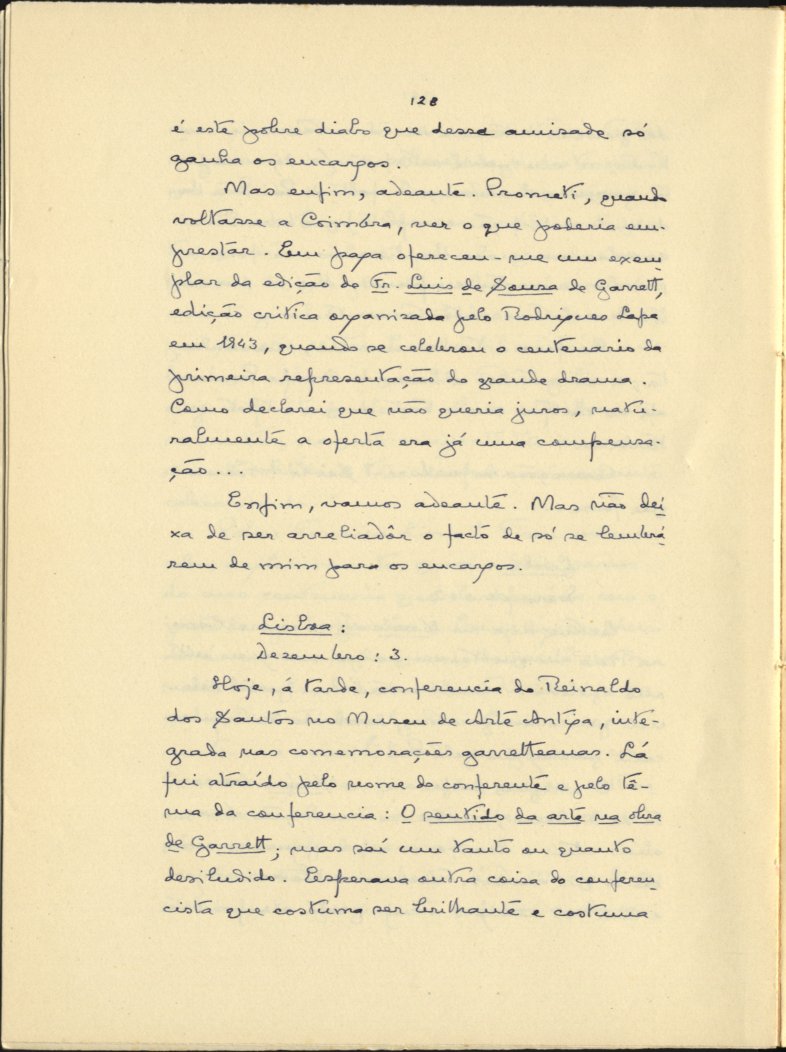 128
é este pobre diabo que dessa amizade só
ganha os encargos.
Mas enfim, adeante. Prometi, quando
voltasse a Coimbra, ver o que poderia em-
prestar. Em paga ofereceu-me um exem-
plar da edição do Fr. Luis de Sousa de Garrett,
edição critica organisada pelo Rodrigues Lapa
em 1943, quando se celebrou o centenario da
primeira representação do grande drama.
Como declarei que não queria juros, natu-
ralmente a oferta era já uma compensa-
ção...
Enfim, vamos adeante. Mas não dei-
xa de ser arreliadôr o facto de só se lembra-
rem de mim para os encargos.
Lisboa:
Dezembro: 3.
Hoje, á tarde, conferencia do Reinaldo
dos Santos no Museu de Arte Antiga, inte-
grada nas comemorações garretteanas. Lá
fui atraído pelo nome do conferente e pelo tê-
ma da conferencia: O sentido da arte na obra
de Garrett; mas saí um tanto ou quanto
desiludido. Eesperava outra coisa do conferen-
cista que costuma ser brilhante e costuma